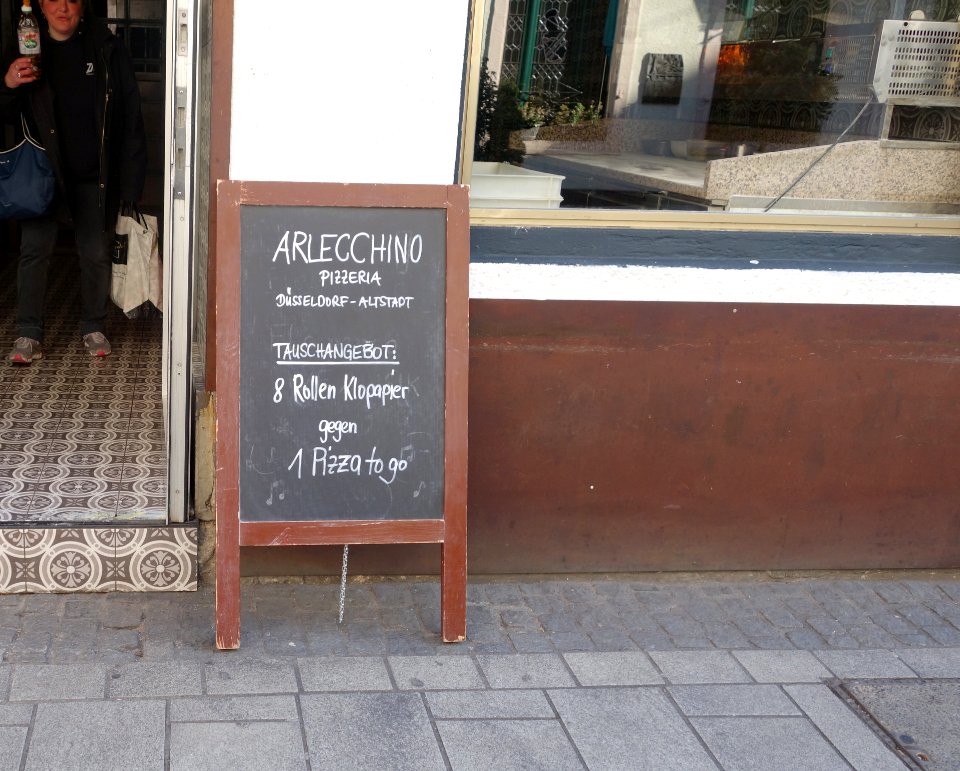 ARLECCHINO
PIZZERIA
DÜSSELDORF-ALTSTADT
TAUSCHANGEBOT:
8 Rollen Klopapier
gegen
1 Pizza to go